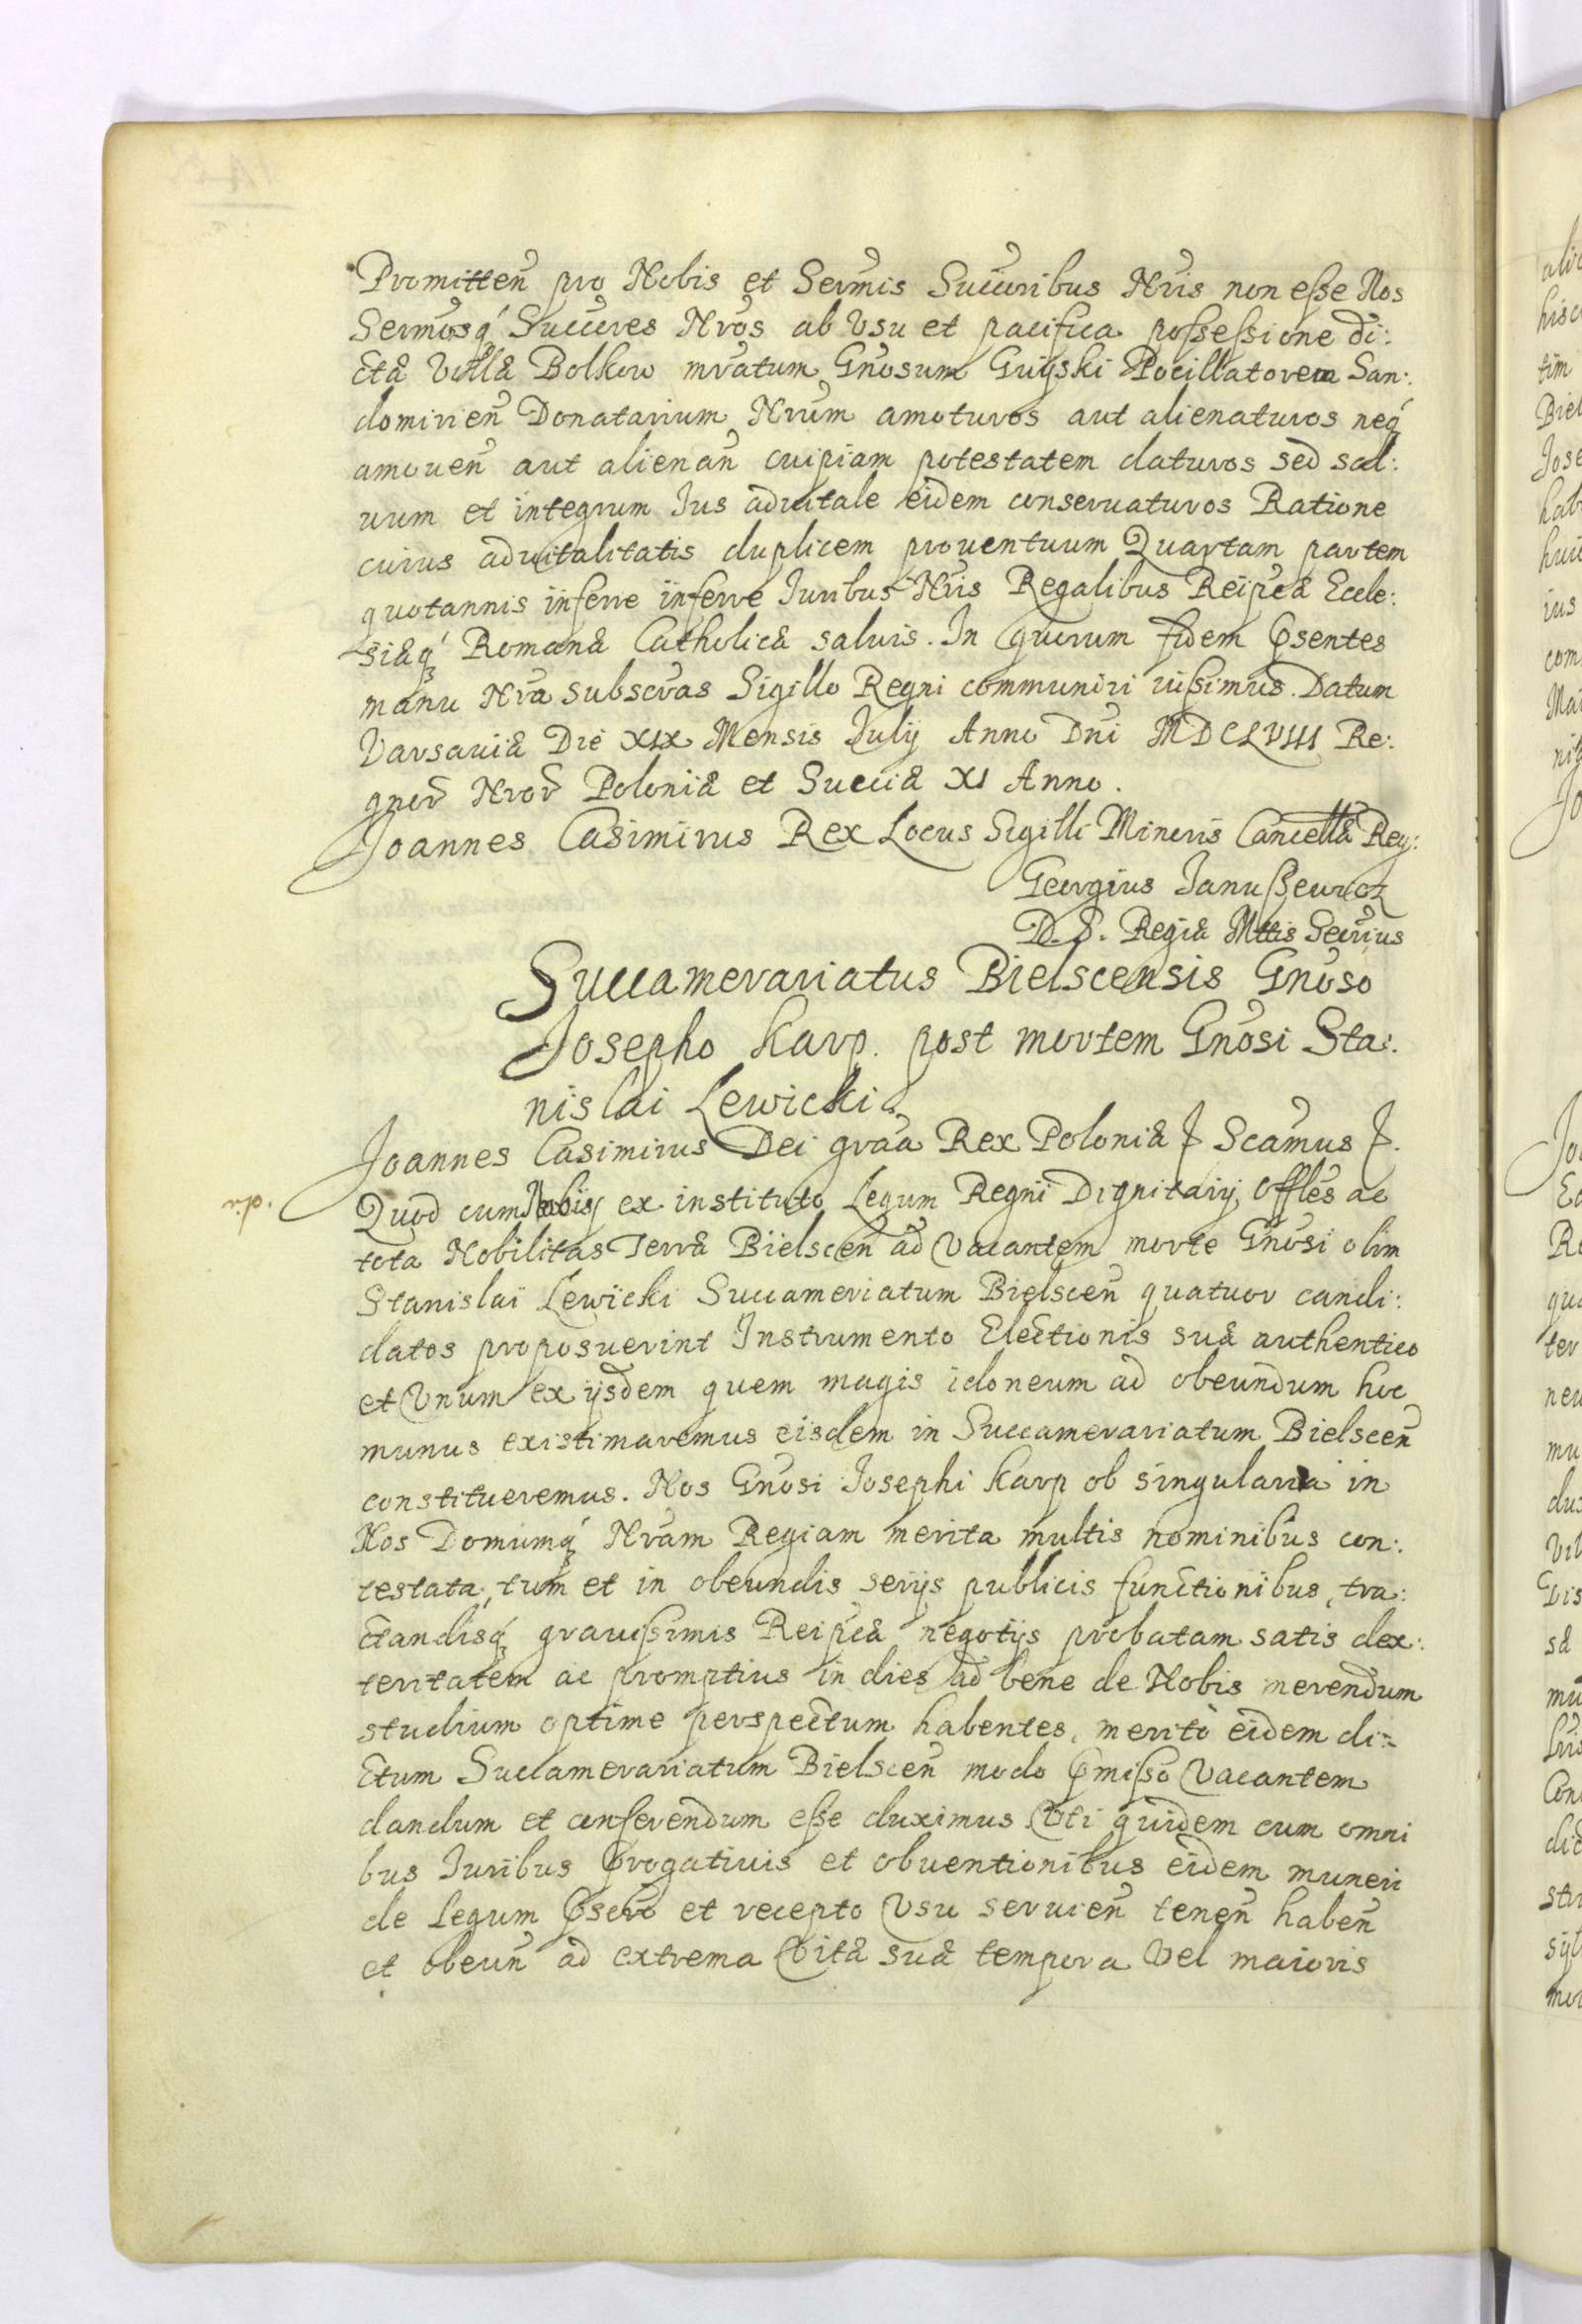 Promitteñ pro Nobis et Sermis Succoribus Nris non eße Nos
Sermosq́ Succeres Nros ab Vsu et pacifica poßeßione di:
ctæ Villæ Bolkow mratum Gnosum Guÿski Pocillatorem San:
domirieñ Donatarium Nrum amoturos aut alienaturos neq́
amoueñ aut alienañ cuipiam potestatem daturos sed sal:
uum et integrum Ius aduitale eidem conseruaturos Ratione
cuius aduitalitatis duplicem prouentuum Quartam partem
quotannis inferre inferre Iuribus Nris Regalibus Reipcæ Eccle:
siæq́ Romanæ Catholicæ saluis. In quorum fidem Psentes
manu Nra subscras Sigillo Regni communiri iußimus. Datum
Varsauiæ Die XIX Mensis Iulij Anno Dni MDCLVIII Re:
gnor Nror Poloniæ et Sueciæ XI Anno.
Joannes Casimirus Rex Locus Sigilli Minoris Cancellæ Reg:
Georgius Ianußewicz
D. S. Regiæ Mttis Secrius
Succamerariatus Bielscensis Gnoso
Josepho Karp. post mortem Gnosi Sta:
nislai Lewicki.
Joannes Casimirus Dei graa Rex Poloniæ Scamus
v.p.
Quod cum Nobis ex instituto Legum Regni Dignitarij, Offles ac
tota Nobilitas Terræ Bielsceñ ad Vacantem morte Gnosi olim
Stanislai Lewicki Succameriatum Bielsceñ quatuor candi:
datos proposuerint Instrumento Electionis suæ authentico
et Vnum ex ijsdem quem magis idoneum ad obeundum hoc
munus existimaremus eisdem in Succamerariatum Bielsceñ
constitueremus. Nos Gnosi Iosephi Karp ob singularia in
Nos Domumq́ Nram Regiam merita multis nominibus con:
testata, tum et in obeundis serijs publicis functionibus, tra:
ctandisq́ grauißimis Reipcæ negotijs probatam satis dex:
teritatem ac promptius in dies ad bene de Nobis merendum
studium optime perspectum habentes, merito eidem di:
ctum Succamerariatum Bielsceñ modo Pmißo Vacantem
dandum et conferendum eße duximus Vti quidem cum omni
bus Iuribus Progatiuis et obuentionibus eidem muneri
de Legum Pscro et recepto Vsu seruieñ teneñ habeñ
et obeuñ ad extrema Vitæ suæ tempora Vel maioris